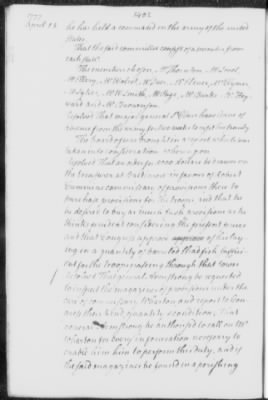 1777
April 15
he has held a command in the army of the united
states.
That the said committee consist of a member from
each state.
The members chosen, Mr Thornton, Mr Lovel
Mr Ellery, Mr Wolcott, Mr Duer, Mr Elmer, Mr Clymer
Mr Sykes, Mr W Smith, Mr Page, Mr Burke, Mr Hey
ward and Mr Brownson.
Resolved That major general St Clair have leave of
absence from the army for two weeks to visit his family
The board of war brought in a report which was
taken into consideration, whereupon
Resolved That an order for 5000 dollars be drawn on
the treasurer at Baltimore in favour of Robert
commissary of provisions there to
purchase provisions for the troops and that he
be desired to buy as much fresh provisions as he
thinks prudent considering the present price
and that Congress approve of his lay
ing in a quantity of barrelled shad fish suffici
ent for the troops passing through that town
Resolved That general Armstrong be requested
to inspect the magazines of provisions under the
care of commissary Wharton and report to Con
gress their kind, quantity & condition; That
general Armstrong be authorised to call on Mr
Wharton for every information necessary to
enable him to perform this duty, and if
the said magazines be found in a perishing